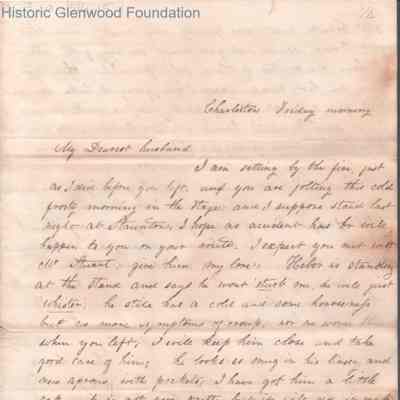 Historic Glenwood Foundation
Charleston Friday morning
My Dearest husband
I am sitting by the fire, just
as I sat before you left, and you are jolting this cold
frosty morning in the stage and I suppose staid last
night at Staunton, I hope no accident has or will
happen to you on your route. I expect you met with
Mr Stuart, give him my love. is standing
at the stand and says he wont me, he will just
whister. he still has a cold and some hoarseness
but no more symptoms of croup, nor no worse than
when you left, I will keep him close and take
good care of him; he looks so snug in his linsey and
new aprons, with pockets; I have got him a little
cap, it is not very pretty but